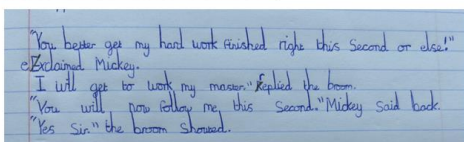 "You better get my hard work finished right this Second or else!"
eExclaimed Mickey.
I will get to work my master." Replied the broom.
"You will now follow me, this Second." Mickey Said back.
"Yes Sir." the broom Shouted.